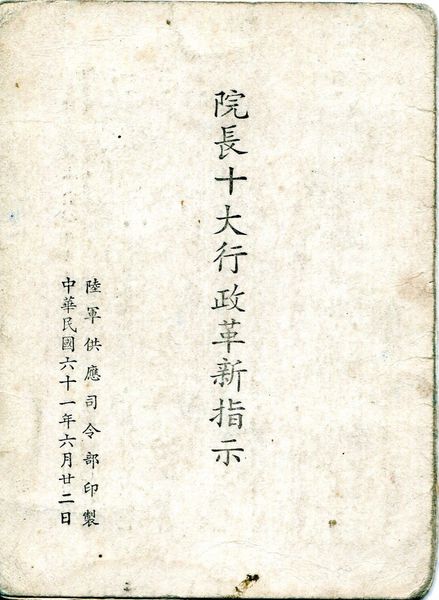 院長十大行政革新指示
陸軍供應司令部印製
中華民國六十一年六月廿二日